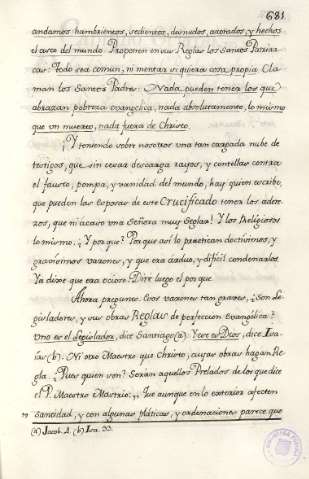 681
andamos hambrientos, sedientos, desnudos, azotados, y hechos
el asco del mundo. Proponen en sus Reglas los Santos Patriar-
cas: Todo sea comun, ni mentar siquiera cosa propia. Cla-
man los Santos Padres: Nada pueden tener los que
abrazan pobreza evangelica, nada absolutamente, lo mismo
que un muerto, nada fuera de Christo.
¡Y teniendo sobre nosotros una tan cargada nube de
testigos, que sin cesar descarga rayos, y centellas contra
el fausto, pompa, y vanidad del mundo, hay quien escribe,
que puedan las Esposas de este Crucificado tener los adere-
zos, que ni acaso una Señora muy seglar! Y los Religiosos
lo mismo. ¿Y por que? Porque asi lo practican doctisimos, y
gravisimos varones, y que era arduo, y dificil condenarlos.
Ya dixe que era ocioso. Dire luego el por que.
Ahora pregunto: Esos varones tan graves, ¿Son Le-
gisladores, y sus obras Reglas de perfeccion Evangelica?
Uno es el Legislador, dice Santiago (a). Y este es Dios, dice Isa-
ias (b). Ni otro Maestro que Christo, cuyas obras hagan Re-
gla. ¿Pues quien son? Seran aquellos Prelados de los que dice
el P. Maestro Mastrio: Que aunque en lo exterior afecten
santidad, y con algunas platicas, y ordenaciones parece que
(a) Jacob. 4. (b) Isa. 33.